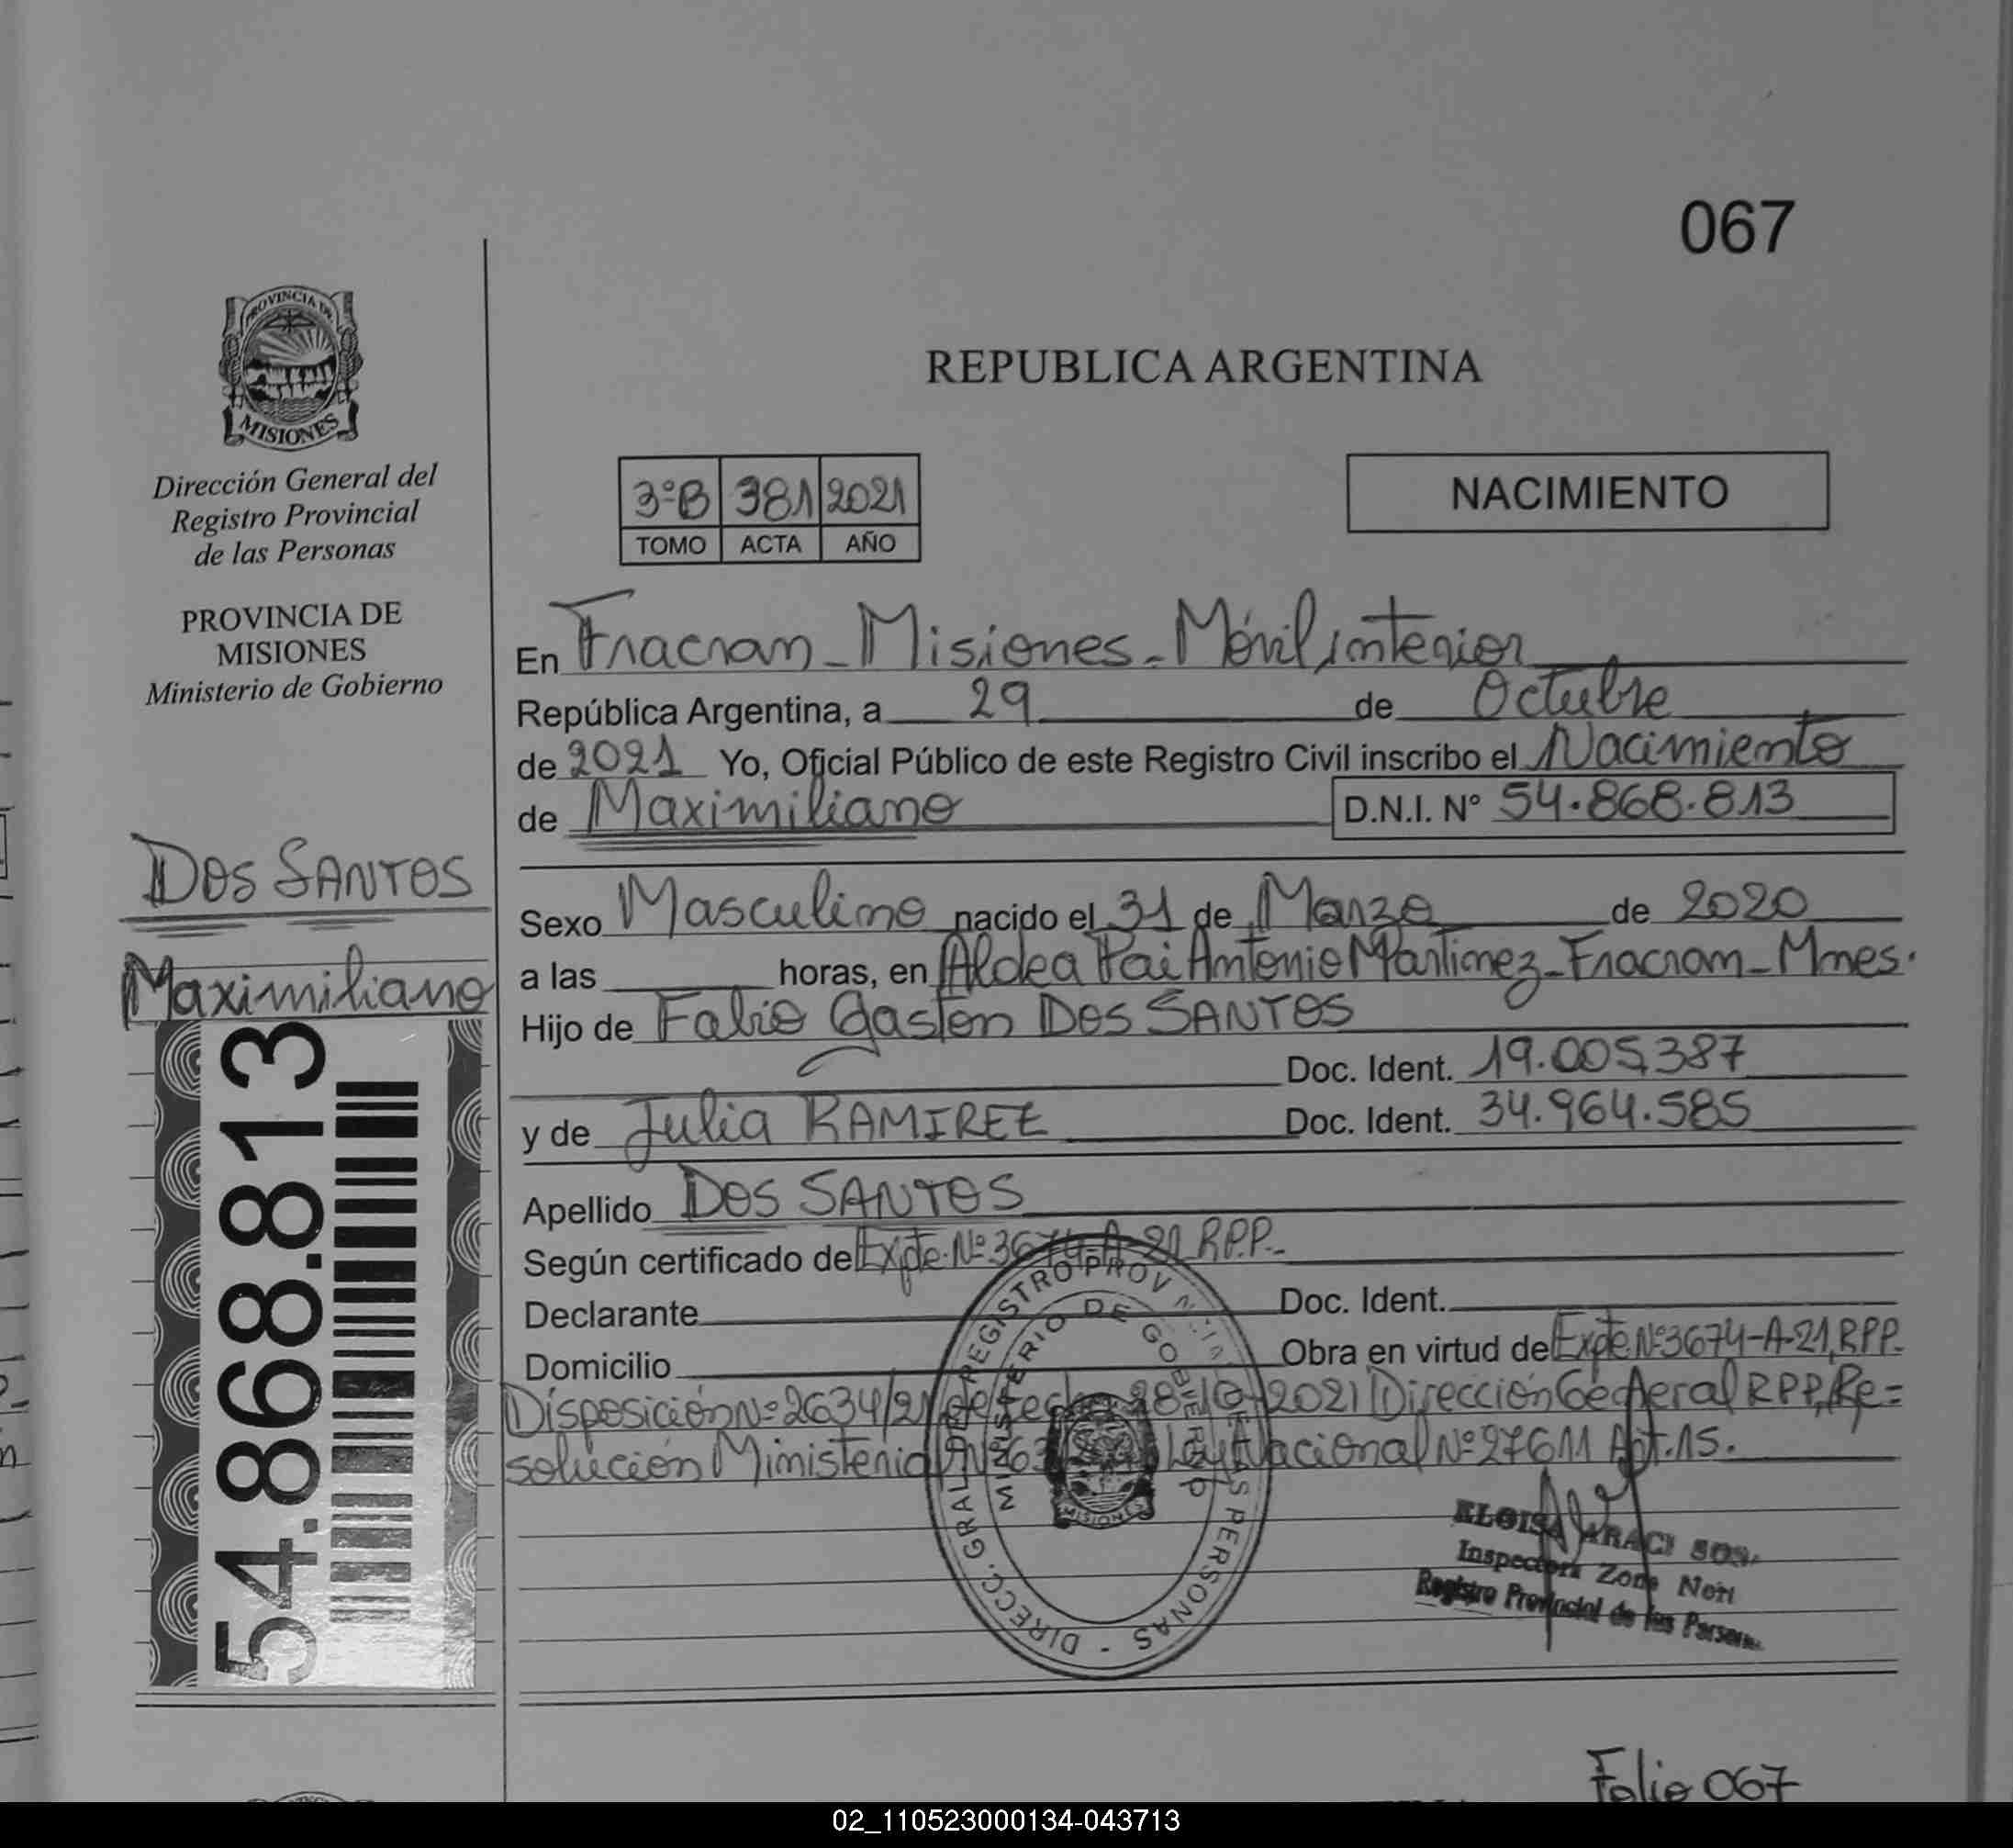 067
PROVINCIA DE
MISIONES
Dirección General del
Registro Provincial
de las Personas
PROVINCIA DE
MISIONES
Ministerio de Gobierno
DOS SANTOS
Maximiliano
54.868.813
REPUBLICA ARGENTINA
3°B 381 2021
TOMO ACTA AÑO
NACIMIENTO
En Fracran - Misiones - Móvil interior
República Argentina, a 29 de Octubre
de 2021 Yo, Oficial Público de este Registro Civil inscribo el Nacimiento
de Maximiliano D.N.I. N° 54.868.813
Sexo Masculino nacido el 31 de Marzo de 2020
a las horas, en Aldea Pai Antonio Martinez - Fracran - Mnes.
Hijo de Fabio Gaston DOS SANTOS
Doc. Ident. 19.005.387
y de Julia RAMIREZ Doc. Ident. 34.964.585
Apellido DOS SANTOS
Según certificado de Expte. N° 3674-A-21 R.P.P.-
Declarante Doc. Ident.
Domicilio Obra en virtud de Expte N° 3674-A-21, RPP.
Disposición N° 2634/21 de fecha 28-10-2021 Dirección General RPP, Re=
solución Ministerial N° Ley Nacional N° 27611 Art. 15.
DIRECC. GRAL. DEL REGISTRO PROV DE LAS PERSONAS -
MINISTERIO DE GOBIERNO
MISIONES
ELOISA ARACI
Inspectora Zona
Registro Provincial de las
Folio 067
02_110523000134-043713